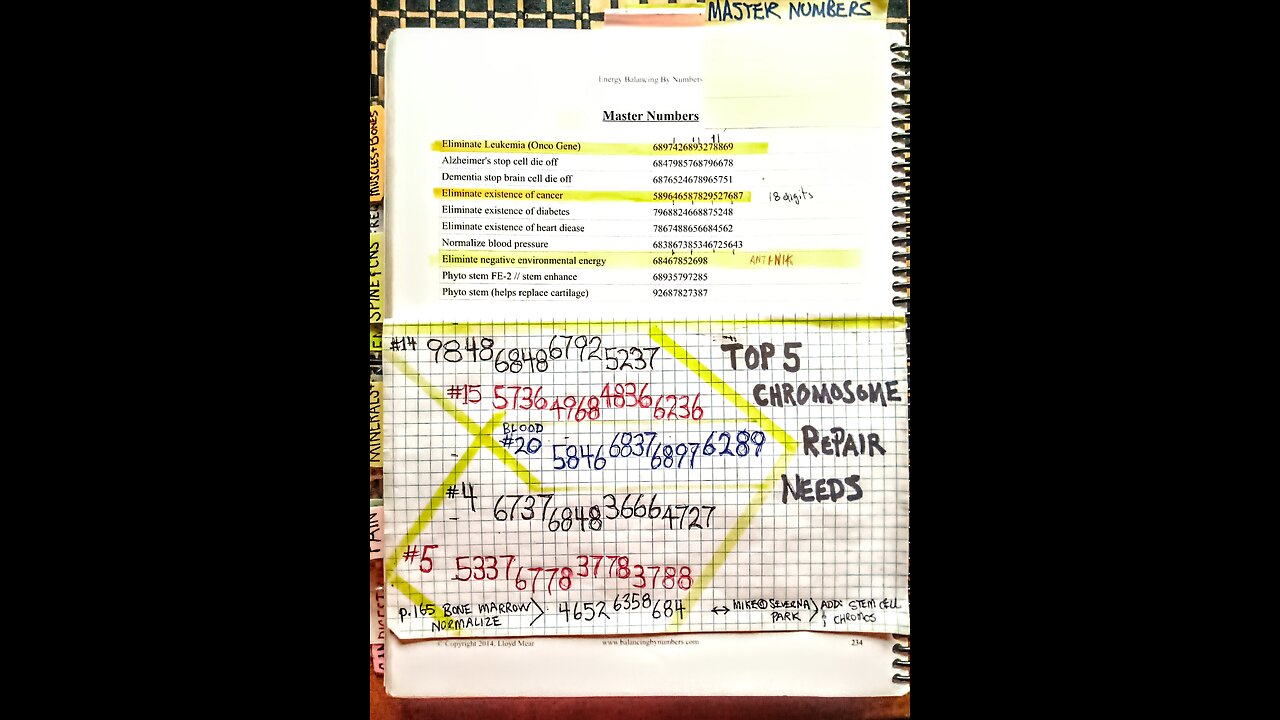 MASTER NUMBERS
Energy Balancing By Numbers
Master Numbers
Eliminate Leukemia (Onco Gene) 6897426893278869
Alzheimer's stop cell die off 6847985768796678
Dementia stop brain cell die off 6876524678965751
Eliminate existence of cancer 589646587829527687 18 digits
Eliminate existence of diabetes 7968824668875248
Eliminate existence of heart diease 7867488656684562
Normalize blood pressure 683867385346725643
Eliminte negative environmental energy 68467852698
Phyto stem FE-2 // stem enhance 68935797285
Phyto stem (helps replace cartilage) 92687827387
#14 9848 6848 6792 5237
#15 5736 4968 4836 6236
BLOOD
#20 5846 6837 6897 6289
#4 6737 6848 3666 4727
#5 5337 6778 3778 3788
TOP 5
CHROMOSOME
REPAIR
NEEDS
p.165 BONE MARROW NORMALIZE > 4652 6358 684 ↔ MIKE@SEVERNA PARK > ADD: STEM CELL & CHROMOS
© Copyright 2014, Lloyd Mear www.balancingbynumbers.com 234
MUSCLES+BONES
SPINE+CNS
MINERALS+
PAIN